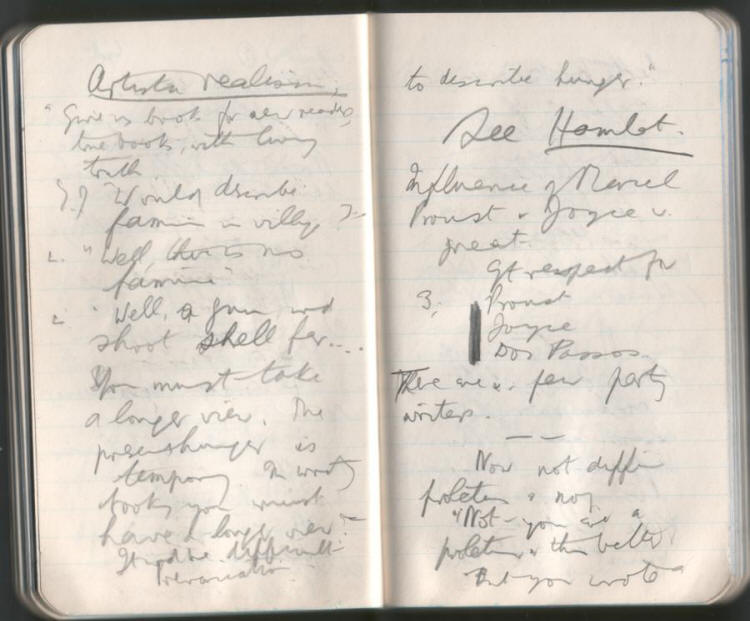 Artistic realism.
"Give us books for new readers,
true books, with living
truth
Would describe
famine in village?
2. "Well, there is no
famine"
2 "Well, a gun wd
shoot shell far...
You must take
a longer view. The
present hunger is
temporary In writing
books you must
have a longer view"
It wd be difficult
to describe hunger."
See Hamlet.
Influence of Marcel
Proust & Joyce v.
great.
Gt respect for
3. Proust
Joyce
Dos Passos.
There are v. few party
writers.
Now not
"Not - you are a
the better
But you wrote